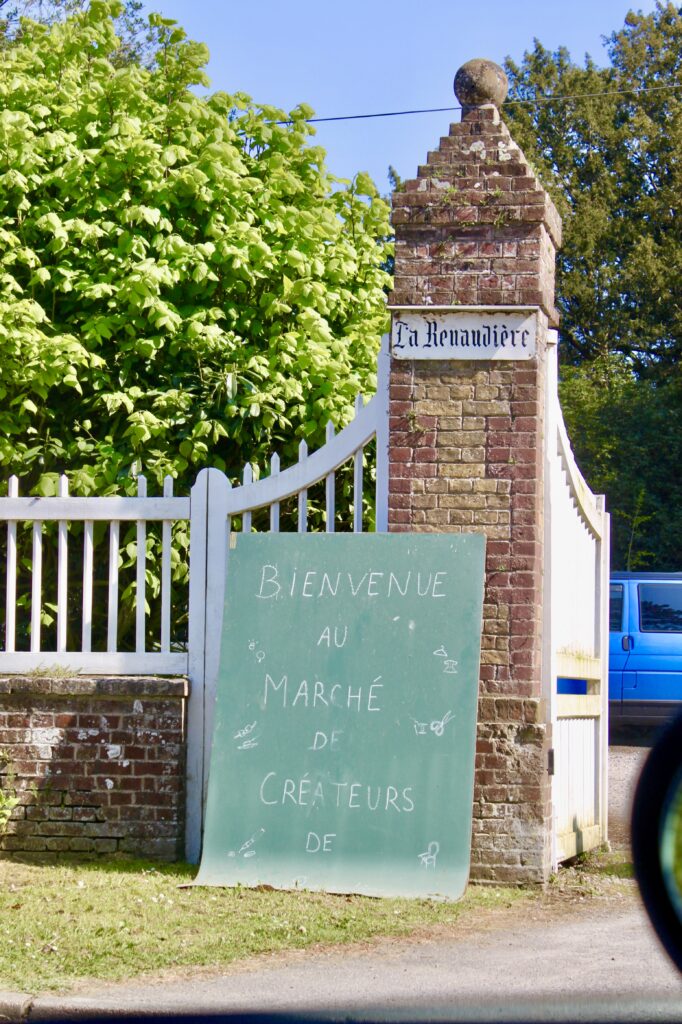 La Renaudière
BIENVENUE
AU
MARCHÉ
DE
CRÉATEURS
DE